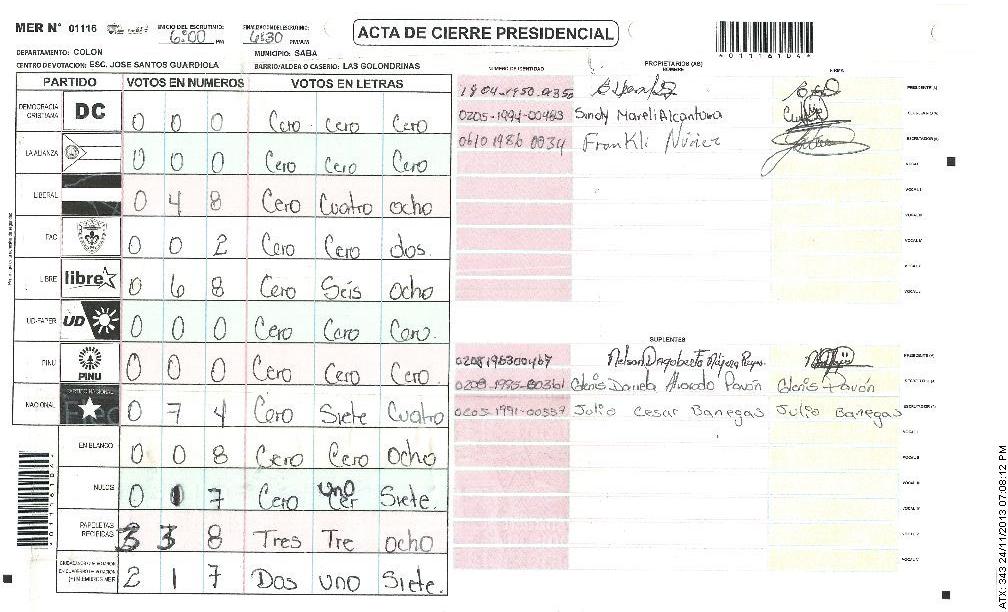 MER N° 01116 INICIO DEL ESCRUTINIO: 6:00 PM FINALIZACION DEL ESCRUTINIO: 6:30 PM/AM
ACTA DE CIERRE PRESIDENCIAL
DEPARTAMENTO: COLON MUNICIPIO: SABA
CENTRO DE VOTACION: ESC. JOSE SANTOS GUARDIOLA BARRIO/ALDEA O CASERIO: LAS GOLONDRINAS
PARTIDO VOTOS EN NUMEROS VOTOS EN LETRAS
DEMOCRACIA CRISTIANA DC 0 0 0 Cero Cero Cero
LA ALIANZA 0 0 0 Cero Cero Cero
LIBERAL 0 4 8 Cero Cuatro ocho
PAC 0 0 2 Cero Cero dos.
LIBRE libre 0 6 8 Cero Seis ocho
UD-FAPER UD 0 0 0 Cero Cero Cero.
PINU PINU 0 0 0 Cero Cero Cero.
NACIONAL 0 7 4 Cero Siete Cuatro
EN BLANCO 0 0 8 Cero Cero ocho
NULOS 0 1 7 Cero uno Siete.
PAPELETAS RECIBIDAS 3 3 8 Tres Tre ocho
2 1 7 Dos uno Siete.
NUMERO DE IDENTIDAD PROPIETARIOS (AS) NOMBRE FIRMA
1804-1950-01350 PRESIDENTE (A)
0205-1994-00463 Sindy Mareli Alcantara SECRETARIO (A)
0610 1986 0034 Frankli Núñez ESCRUTADOR (A)
VOCAL I
VOCAL II
VOCAL III
VOCAL IV
VOCAL V
SUPLENTES
0208198300467 Nelson Dagoberto Nájera Reyes PRESIDENTE (A)
0209-1995-00361 Glenis Daniela Alvarado Pavón Glenis Pavón SECRETARIO (A)
0205-1991-00557 Julio Cesar Banegas Julio Banegas ESCRUTADOR (A)
VOCAL I
VOCAL II
VOCAL III
VOCAL IV
VOCAL V
*01116104*
ATX: 343 24/11/2013 07:08:12 PM